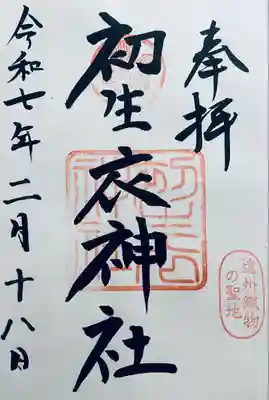 奉拝
初生衣神社
遠州織物
の聖地
令和七年二月十八日